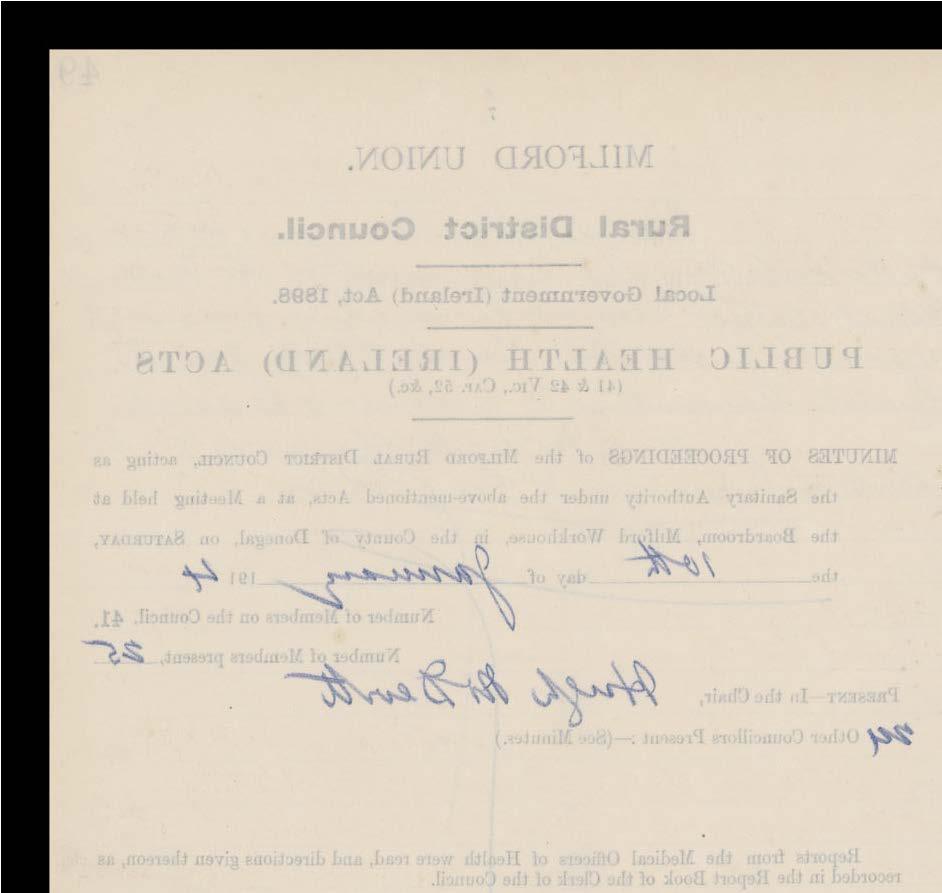 49
7
MILFORD UNION.
Rural District Council.
Local Government (Ireland) Act, 1898.
PUBLIC HEALTH (IRELAND) ACTS
(41 & 42 VIC., CAP. 52, &c.)
MINUTES OF PROCEEDINGS of the MILFORD RURAL DISTRICT COUNCIL, acting as
the Sanitary Authority under the above-mentioned Acts, at a Meeting held at
the Boardroom, Milford Workhouse, in the County of Donegal, on SATURDAY,
the 10th day of January 1914
Number of Members on the Council, 41.
Number of Members present, 25
PRESENT—In the Chair, Hugh McDevitt
24 Other Councillors Present :—(See Minutes.)
Reports from the Medical Officers of Health were read, and directions given thereon, as
recorded in the Report Book of the Clerk of the Council.